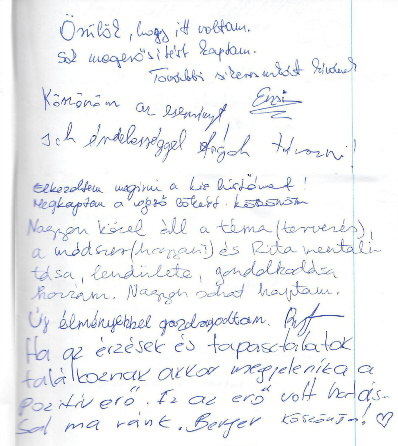 Örülök, hogy itt voltam.
Sok megerősítést kaptam.
További sikeres munkát kívánok
Köszönöm az esményt Enzi
sok érdekességgel fogok távozni!
Elkezdtem megírni a kis históriát!
Megkaptam a végső lökést. Köszönöm
Nagyon közel áll a téma (tervezés),
a módszer (hozzám!) és Rita mentali
tása, lendülete, gondolkodása
hozzám. Nagyon sokat kaptam.
Új élményekkel gazdagodtam.
Ha az érzések és tapasztalatok
találkoznak akkor megjelenik a
pozitív erő. Ez az erő volt hatás-
sal ma ránk. Berger köszönjük! ♡